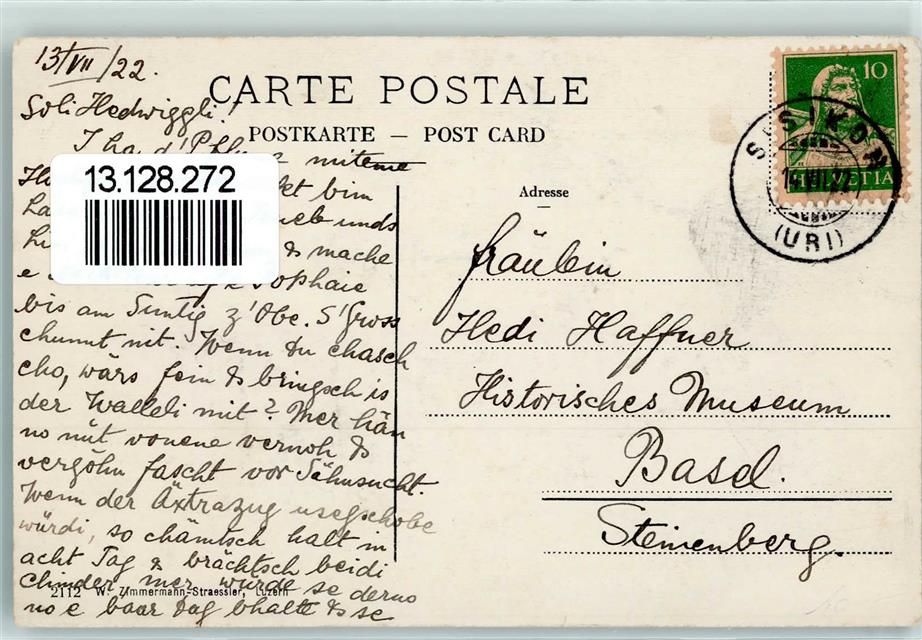 13/VII/22.
CARTE POSTALE
POSTKARTE — POST CARD
Soli Hedwiggli!
I ha d' miteme
13.128.272
bim
unds
& mache
e Sophaie
bis am Suntig z'Obe. S'Gross
chunnt nit. Wenn du chasch
cho, wärs fein & bringsch is
der Walleli mit? Mer hän
no nüt vonene vernoh &
vergöhn fascht vor Sähnsucht.
Wenn der Äxtrazug usegschobe
würdi, so chämtsch halt in
acht Tag & brächtsch beidi
Chinder mer würde se derno
no e baar Tag bhalte & se
2112 W. Zimmermann-Straessler, Luzern
10
HELVETIA
SISIKON
14.VII.22
(URI)
Adresse
Fräulein
Hedi Haffner
Historisches Museum
Basel.
Steinenberg.